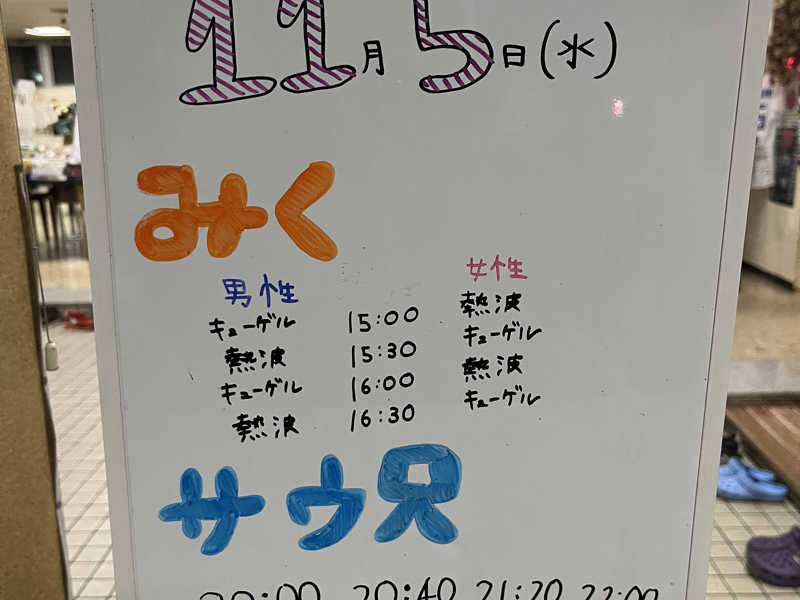 11月5日(水)
みく
男性 女性
キューゲル 15:00 熱波
熱波 15:30 キューゲル
キューゲル 16:00 熱波
熱波 16:30 キューゲル
サウ兄
20:00 20:40 21:20 22:00